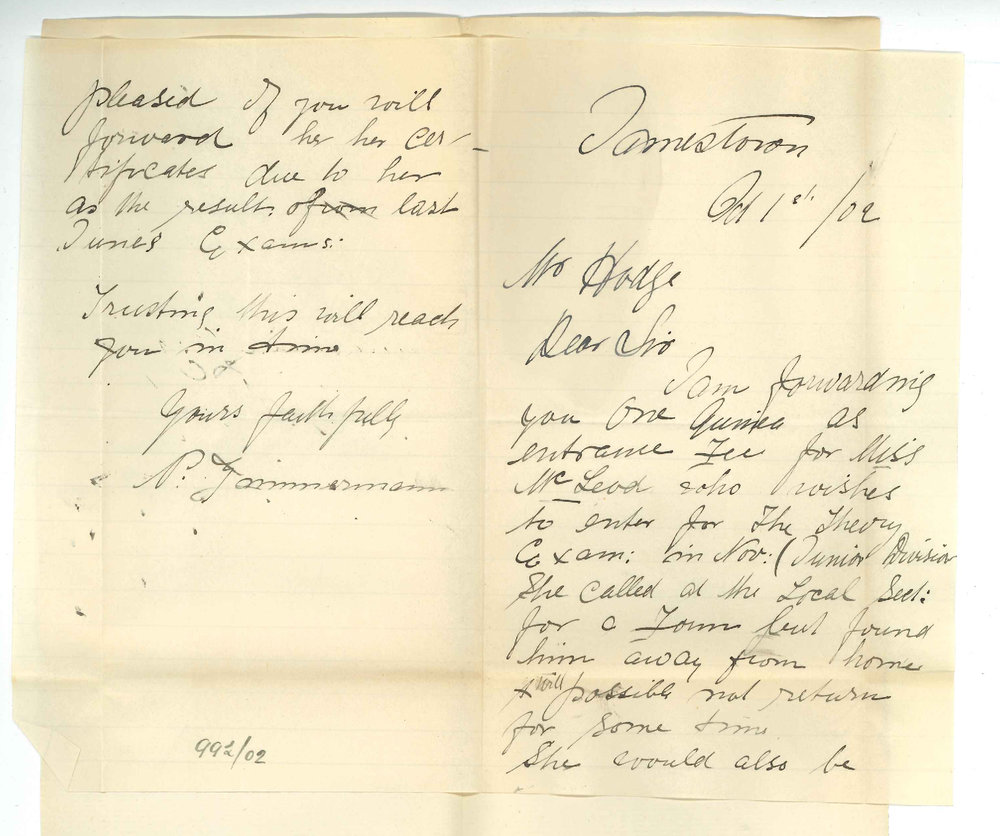 Jamestown
Oct 1st /02
Mr Hodge
Dear Sir
I am forwarding
you One Guinea as
entrance Fee for Miss
McLeod who wishes
to enter for The Theory
Exam: in Nov: (Junior Division
She called at the Local Sect:
for a Form but found
him away from home
& will possible not return
for some time
She would also be
pleased if you will
forward her her cer-
tificates due to her
as the result of from last
Junes Exams:
Trusting this will reach
you in time
Yours faithfully
992/02